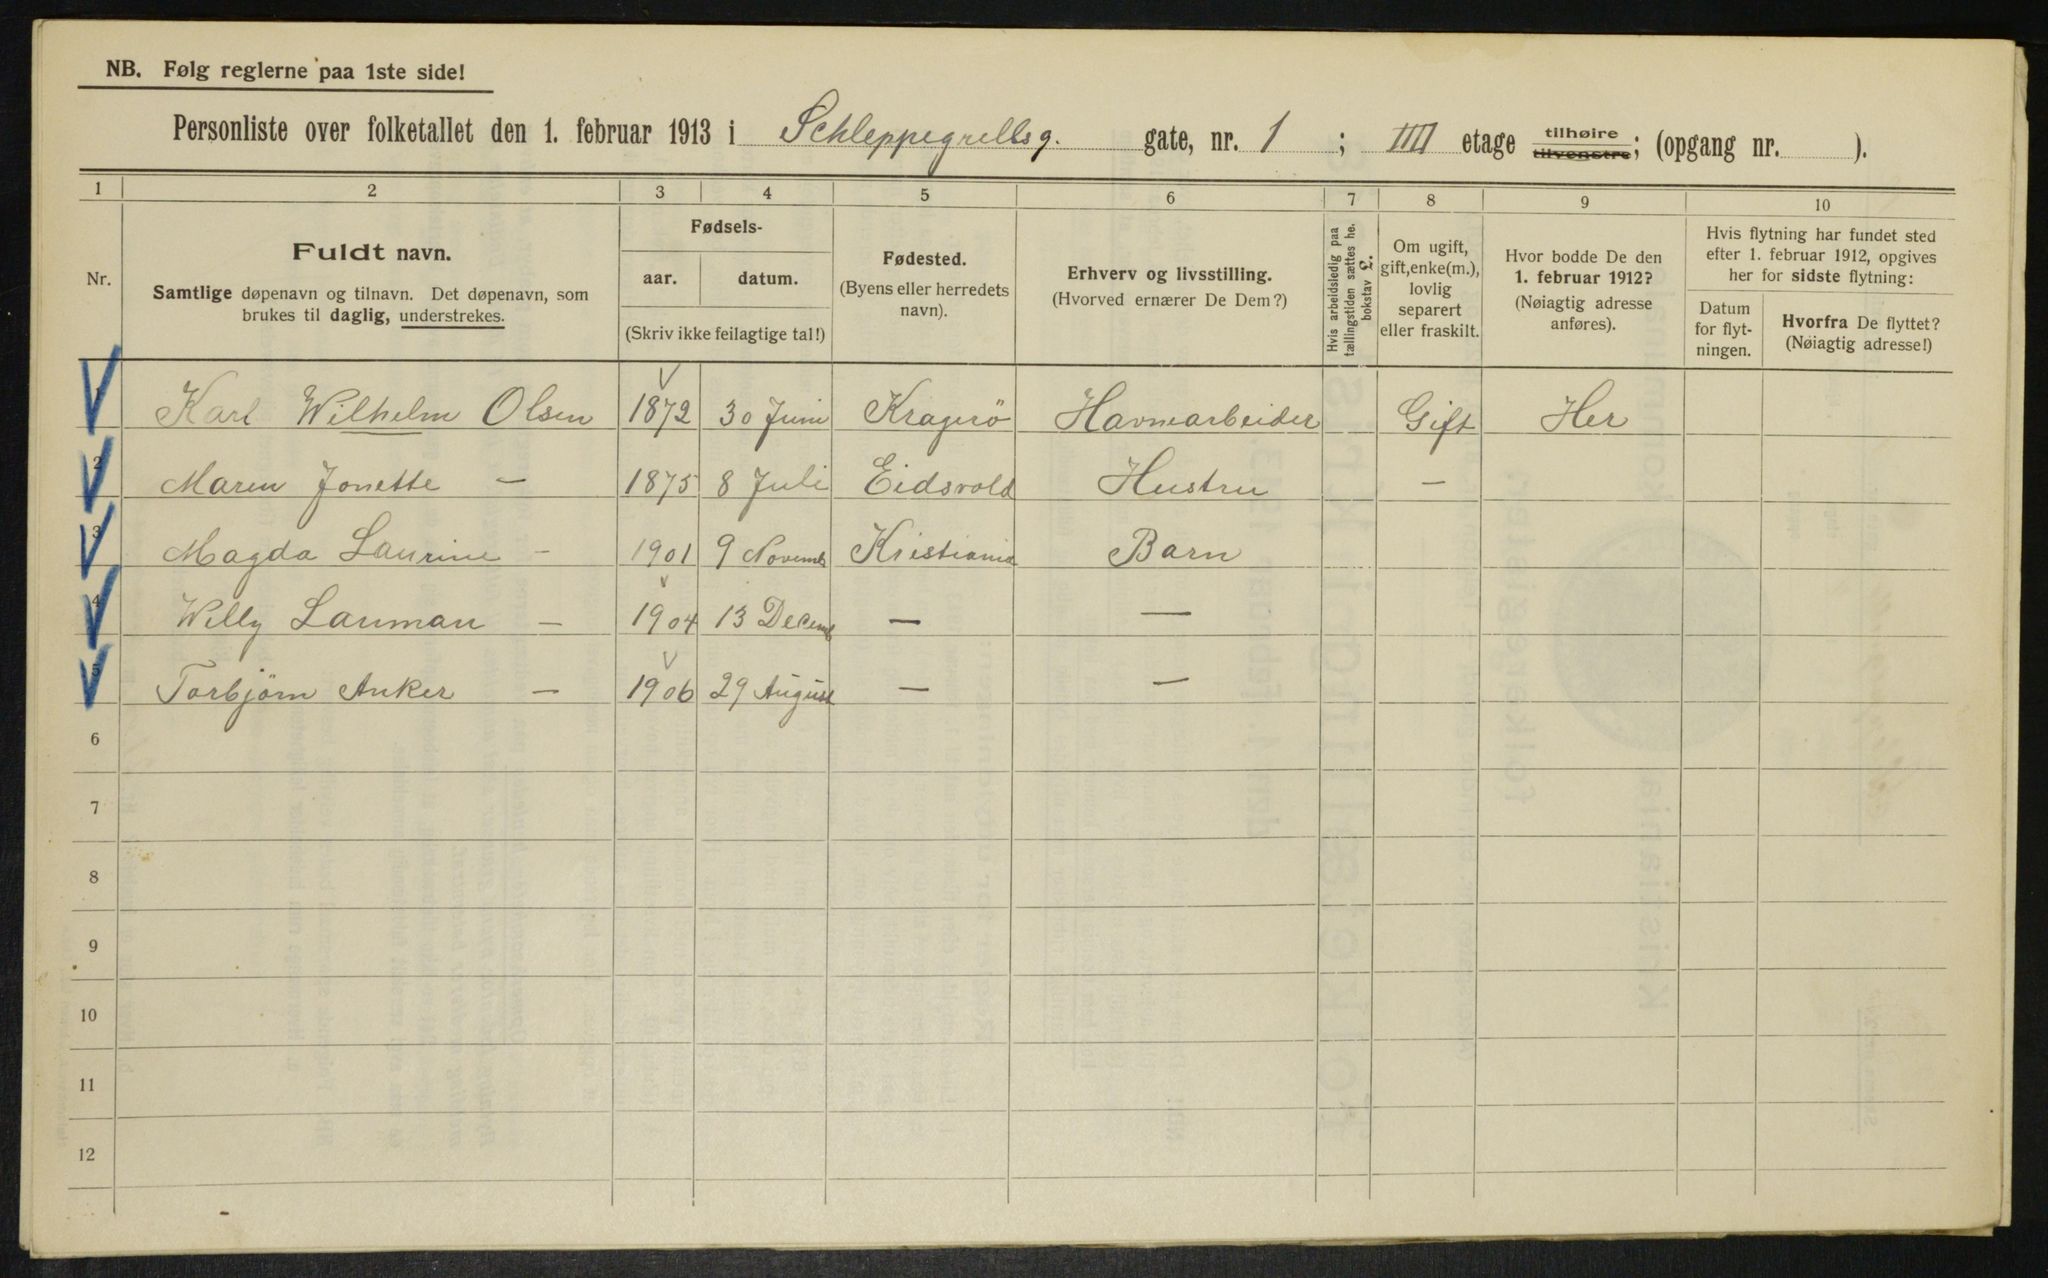 NB. Følg reglerne paa 1ste side!
Personliste over folketallet den 1. februar 1913 i Schleppegrellsg. gate, nr. 1 ; IIII etage tilhøire tilvenstre; (opgang nr. ).
1 2 3 4 5 6 7 8 9 10
Nr.
Fuldt navn.
Samtlige døpenavn og tilnavn. Det døpenavn, som
brukes til daglig, understrekes.
Fødsels-
aar. datum.
(Skriv ikke feilagtige tal!)
Fødested.
(Byens eller herredets
navn).
Erhverv og livsstilling.
(Hvorved ernærer De Dem?)
Hvis arbeidsledig paa
tællingstiden sættes he.
bokstav L.
Om ugift,
gift, enke(m.),
lovlig
separert
eller fraskilt.
Hvor bodde De den
1. februar 1912?
(Nøiagtig adresse
anføres).
Hvis flytning har fundet sted
efter 1. februar 1912, opgives
her for sidste flytning:
Datum
for flyt-
ningen.
Hvorfra De flyttet?
(Nøiagtig adresse!)
1 Karl Wilhelm Olsen 1872 30 Juni Kragerö Havnearbeider Gift Her
2 Maren Jonette — 1875 8 Juli Eidsvold Hustru —
3 Magda Laurine - 1901 9 Novemb Kristiania Barn
4 Willy Lauman — 1904 13 Decemb — —
5 Torbjörn Anker — 1906 29 August — —
6
7
8
9
10
11
12